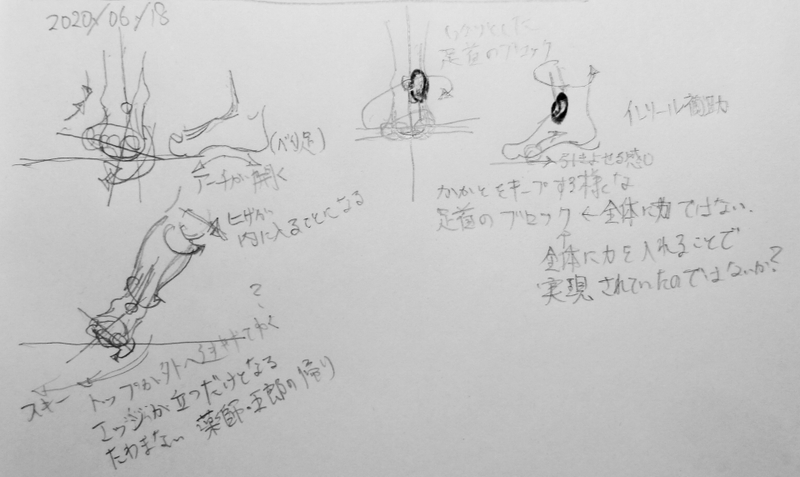 2020/06/18
足首のブロック
(ベリ足)
アーチが開く
ヒザが
内に入ることになる
インソール補助
引きよせる感じ
かかとをキープする様な
足首のブロック ← 全体に力ではない.
全体に力を入れることで
実現されていたのではないか?
?
スキー トップが外へ
エッジが立つだけとなる
たわまない 薬師・五郎の帰り